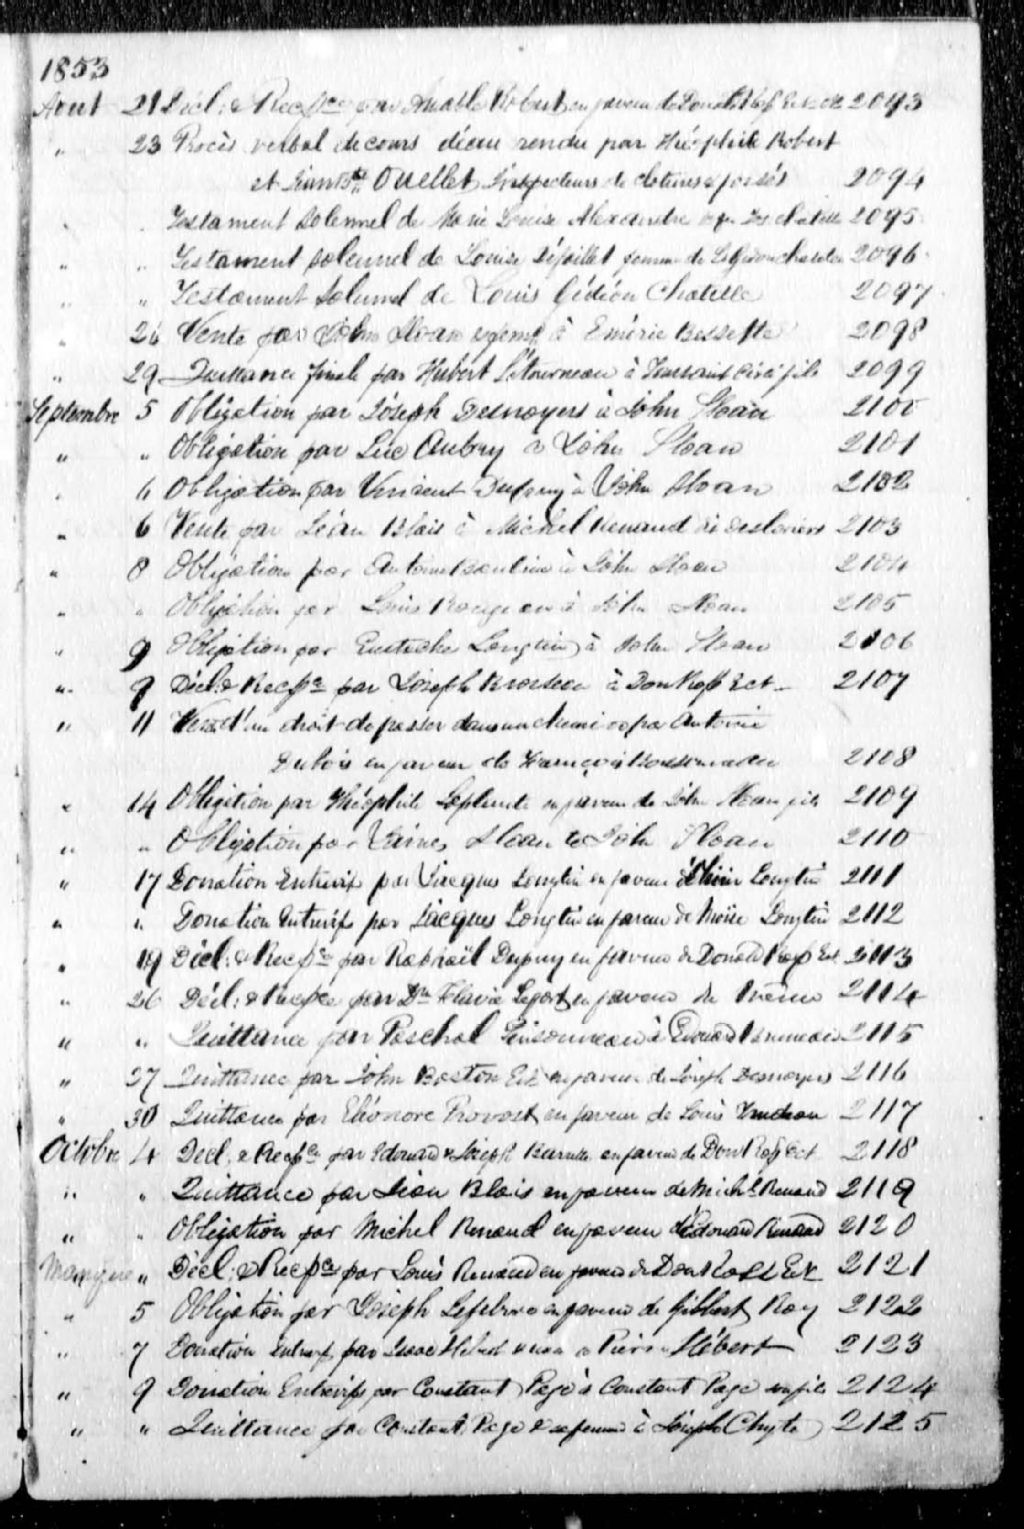 1853
Aout 21 Décl: & Rec^ce par Amable Robert en faveur de Donald Ross Ect 2093
" 23 Procès verbal de cours d'eau rendu par Théophile Robert
et Ouellet Inspecteurs de clotures & fossés 2094
Testament Solennel de Marie Louise Alexandre 2095
" " Testament Solennel de Louise femme de 2096
" " Testament Solennel de Louis Gédéon Chatelle 2097
" 26 Vente par John Sloan à Emérie Bessette 2098
" 29 Quittance finale par Hubert Létourneau à Toussaint fils 2099
Septembre 5 Obligation par Joseph Desnoyers à John Sloan 2100
" " Obligation par Luc Aubry à John Sloan 2101
" 6 Obligation par Vincent Dupuy à John Sloan 2102
" 6 Vente par Léon Blais à Michel Renaud 2103
" 8 Obligation par Antoine à John Sloan 2104
" " Obligation par Louis à John Sloan 2105
" 9 Obligation par Eustache Longtin à John Sloan 2106
" 9 Décl & Rec^ce par Joseph Brosseau à Don Ross Ect 2107
" 11 Vente d'un droit de passer dans un chemin par Antoine
Dubois en faveur de François 2108
" 14 Obligation par Théophile Laplante en faveur de John Sloan fils 2109
" " Obligation par James Sloan to John Sloan 2110
" 17 Donation Entrevifs par Jacques Longtin en faveur d'Olivier Longtin 2111
" " Donation Entrevifs par Jacques Longtin en faveur de Moïse Longtin 2112
" 19 Décl: & Rec^ce par Raphaël Dupuy en faveur de Donald Ross Ect 2113
" 26 Décl: & Rec^ce par D^e Flavie en faveur du même 2114
" " Quittance par Paschal Pinsonneau à Edouard 2115
" 27 Quittance par John Boston Ect en faveur de Joseph Desnoyers 2116
" 30 Quittance par Eléonore Provost en faveur de Louis Trudeau 2117
Octobre 4 Decl. & Rec^ce par Edouard & Joseph en faveur de Don Ross Ect. 2118
" " Quittance par Léon Blais en faveur de Mich^l Renaud 2119
" " Obligation par Michel Renaud en faveur d'Edouard Renaud 2120
Manque " Décl: & Rec^ce par Louis Renaud en faveur de Don Ross Ect 2121
" 5 Obligation par Joseph Lefebvre en faveur de Gilbert Roy 2122
" 7 Donation Entrevifs par Isaac Hébert à Pierre Hébert 2123
" 9 Donation Entrevifs par Constant Page à Constant Page son fils 2124
" " Quittance par Constant Page & sa femme à Joseph 2125